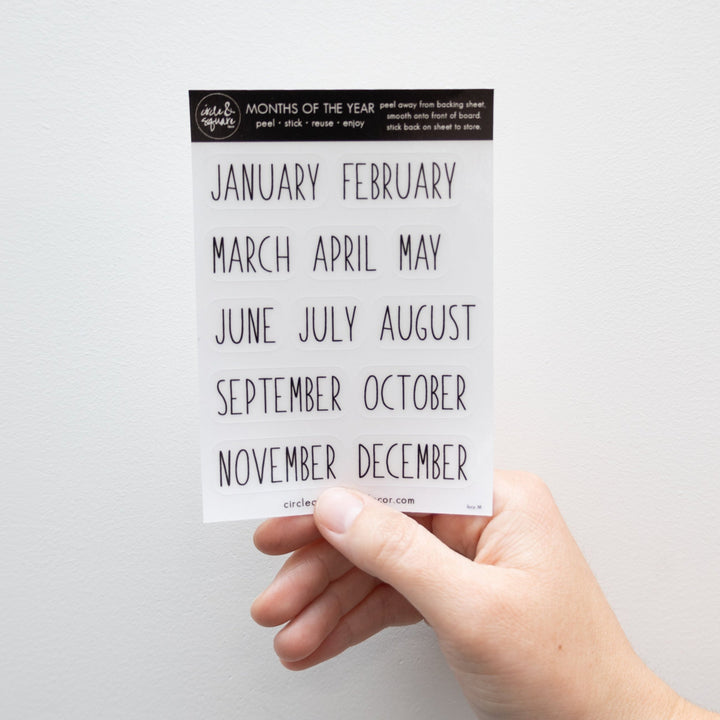 circle &
square
MONTHS OF THE YEAR
peel • stick • reuse • enjoy
peel away from backing sheet,
smooth onto front of board.
stick back on sheet to store.
JANUARY FEBRUARY
MARCH APRIL MAY
JUNE JULY AUGUST
SEPTEMBER OCTOBER
NOVEMBER DECEMBER